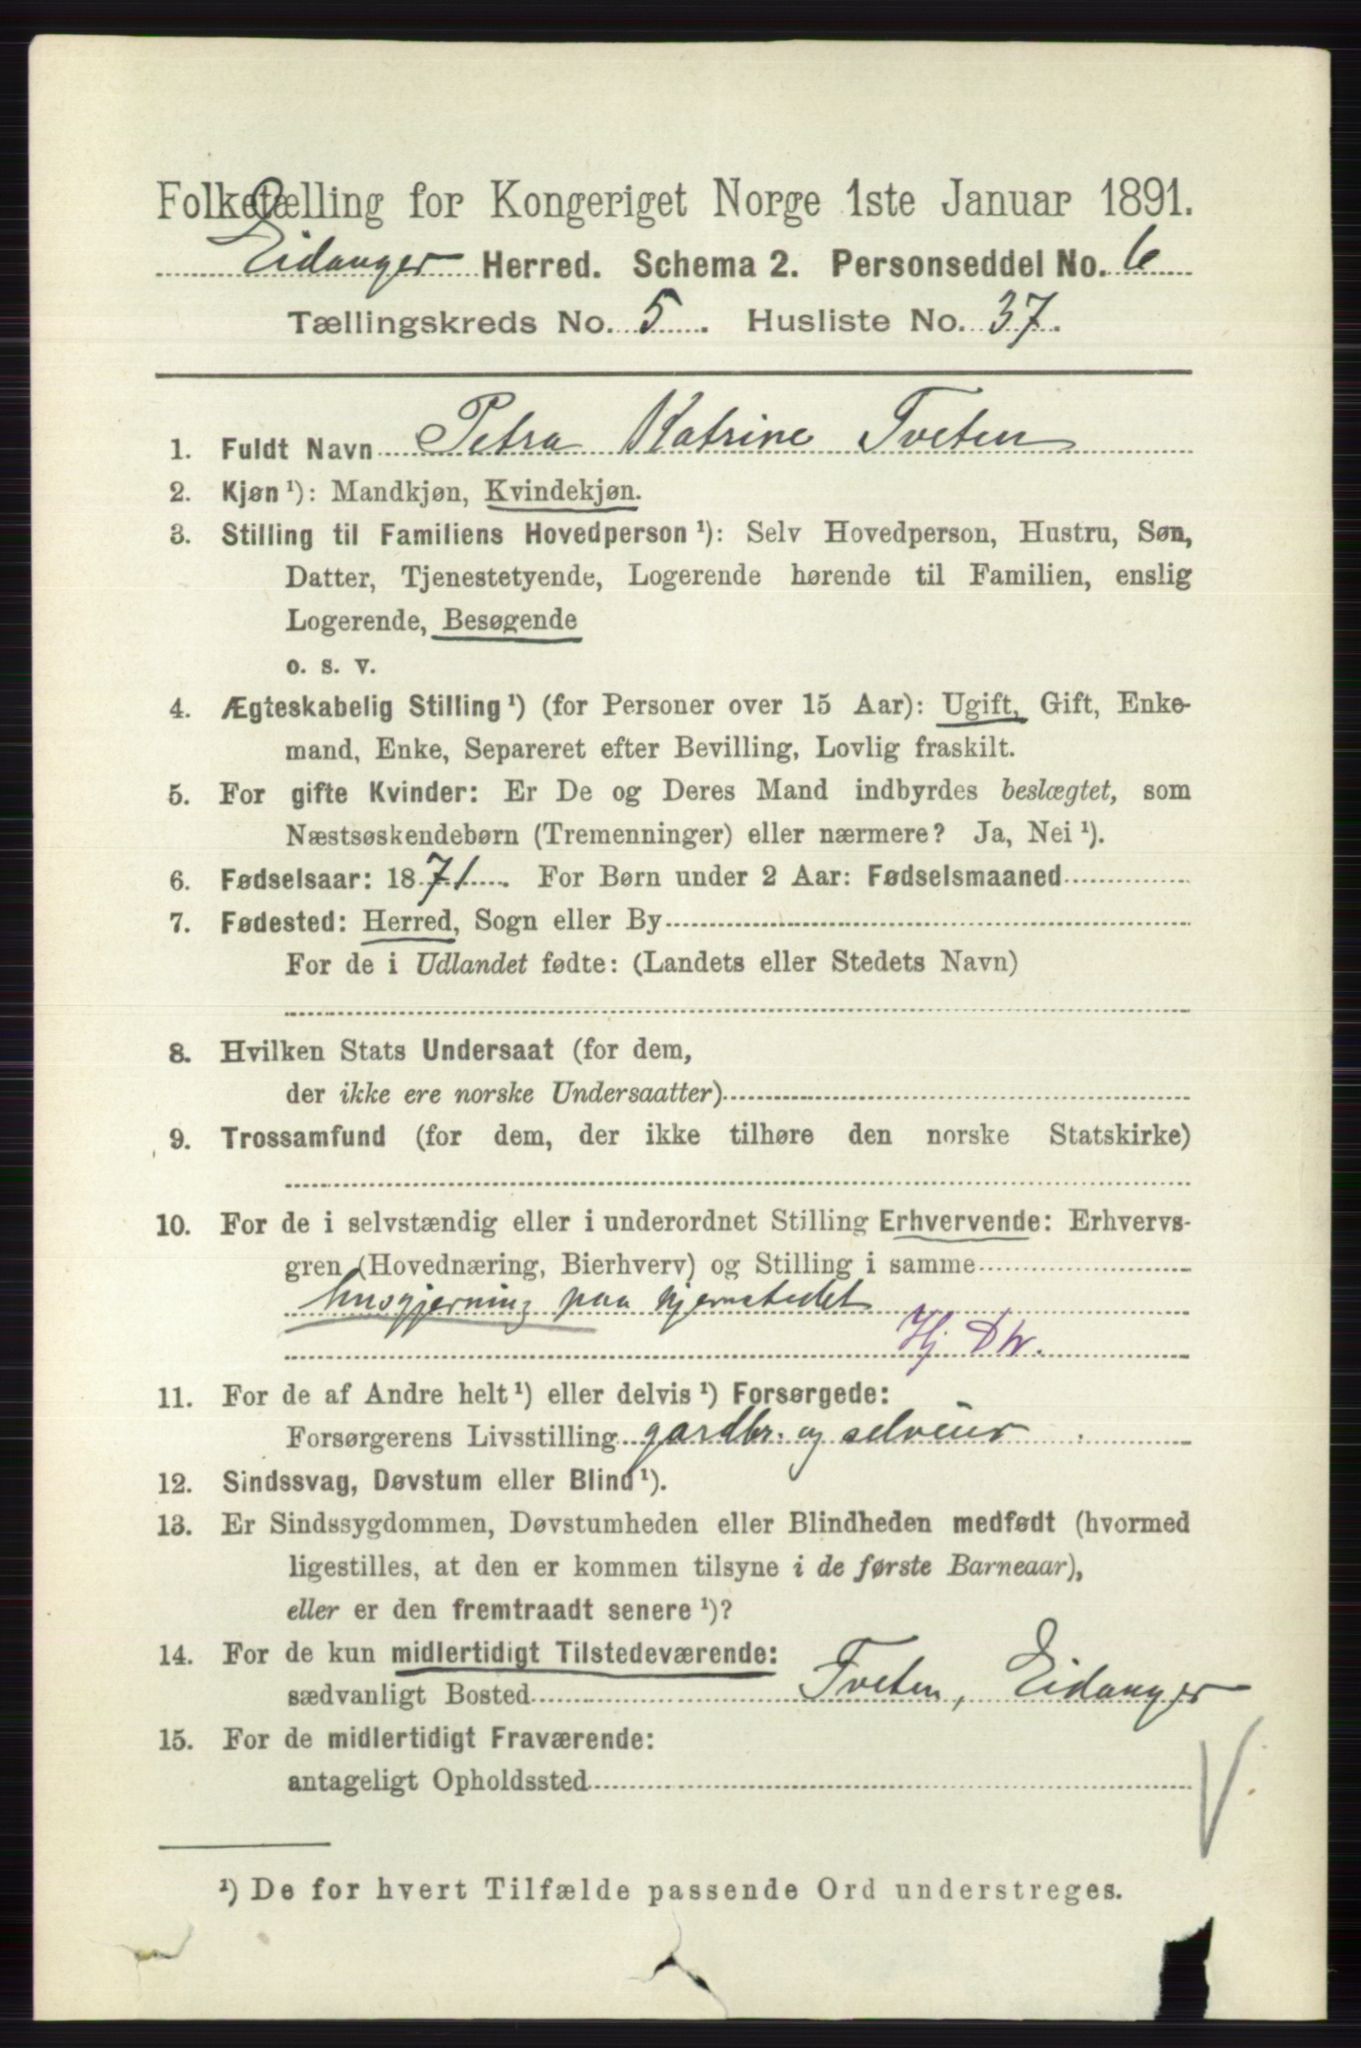 Folketælling for Kongeriget Norge 1ste Januar 1891.
Eidanger Herred. Schema 2. Personseddel No. 6
Tællingskreds No. 5. Husliste No. 37.
1. Fuldt Navn Petra Katrine Tveten
2. Kjøn ¹): Mandkjøn, Kvindekjøn.
3. Stilling til Familiens Hovedperson ¹): Selv Hovedperson, Hustru, Søn,
Datter, Tjenestetyende, Logerende hørende til Familien, enslig
Logerende, Besøgende
o. s. v.
4. Ægteskabelig Stilling ¹) (for Personer over 15 Aar): Ugift, Gift, Enke-
mand, Enke, Separeret efter Bevilling, Lovlig fraskilt.
5. For gifte Kvinder: Er De og Deres Mand indbyrdes beslægtet, som
Næstsøskendebørn (Tremenninger) eller nærmere? Ja, Nei ¹).
6. Fødselsaar: 1871. For Børn under 2 Aar: Fødselsmaaned
7. Fødested: Herred, Sogn eller By
For de i Udlandet fødte: (Landets eller Stedets Navn)
8. Hvilken Stats Undersaat (for dem,
der ikke ere norske Undersaatter)
9. Trossamfund (for dem, der ikke tilhøre den norske Statskirke)
10. For de i selvstændig eller i underordnet Stilling Erhvervende: Erhvervs-
gren (Hovednæring, Bierhverv) og Stilling i samme
husgjerning paa hjemstedet
Hj. Dtr.
11. For de af Andre helt ¹) eller delvis ¹) Forsørgede:
Forsørgerens Livsstilling gardbr. og selveier
12. Sindssvag, Døvstum eller Blind ¹).
13. Er Sindssygdommen, Døvstumheden eller Blindheden medfødt (hvormed
ligestilles, at den er kommen tilsyne i de første Barneaar),
eller er den fremtraadt senere ¹)?
14. For de kun midlertidigt Tilstedeværende:
sædvanligt Bosted Tveten, Eidanger
15. For de midlertidigt Fraværende:
antageligt Opholdssted
¹) De for hvert Tilfælde passende Ord understreges.